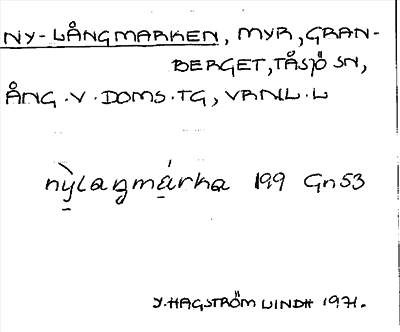 NY-LÅNGMARKEN, MYR, GRAN-
BERGET, TÅSJÖ SN,
ÅNG.V.DOMS.TG, VRNL.L
nỳlaŋmárka 199 Gn53
Y. HAGSTRÖM LINDH 1971.